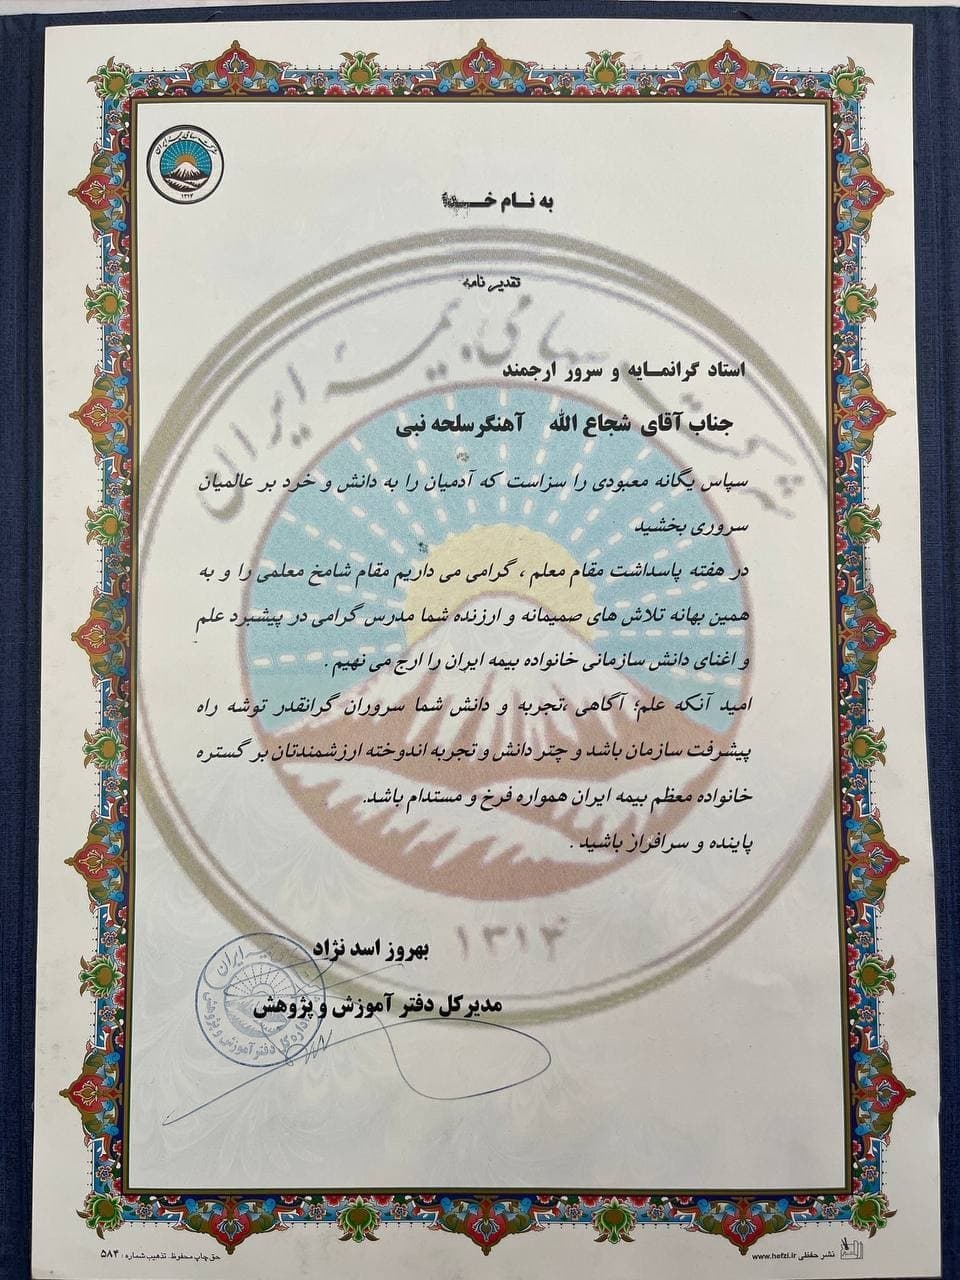 شرکت سهامی بیمه ایران
۱۳۱۴
به نام خدا
تقدیر نامه
شرکت سهامی بیمه ایران
استاد گرانمایه و سرور ارجمند
جناب آقای شجاع الله آهنگرسلحه نبی
سپاس یگانه معبودی را سزاست که آدمیان را به دانش و خرد بر عالمیان
سروری بخشید
در هفته پاسداشت مقام معلم ، گرامی می داریم مقام شامخ معلمی را و به
همین بهانه تلاش های صمیمانه و ارزنده شما مدرس گرامی در پیشبرد علم
و اغنای دانش سازمانی خانواده بیمه ایران را ارج می نهیم .
امید آنکه علم؛ آگاهی ،تجربه و دانش شما سروران گرانقدر توشه راه
پیشرفت سازمان باشد و چتر دانش و تجربه اندوخته ارزشمندتان بر گستره
خانواده معظم بیمه ایران همواره فرخ و مستدام باشد.
پاینده و سرافراز باشید .
۱۳۱۴
بهروز اسد نژاد
مدیرکل دفتر آموزش و پژوهش
بیمه ایران
اداره کل دفتر آموزش و پژوهش
نشر حفظی www.hefzi.ir
حق چاپ محفوظ. تذهیب شماره : ۵۸۴